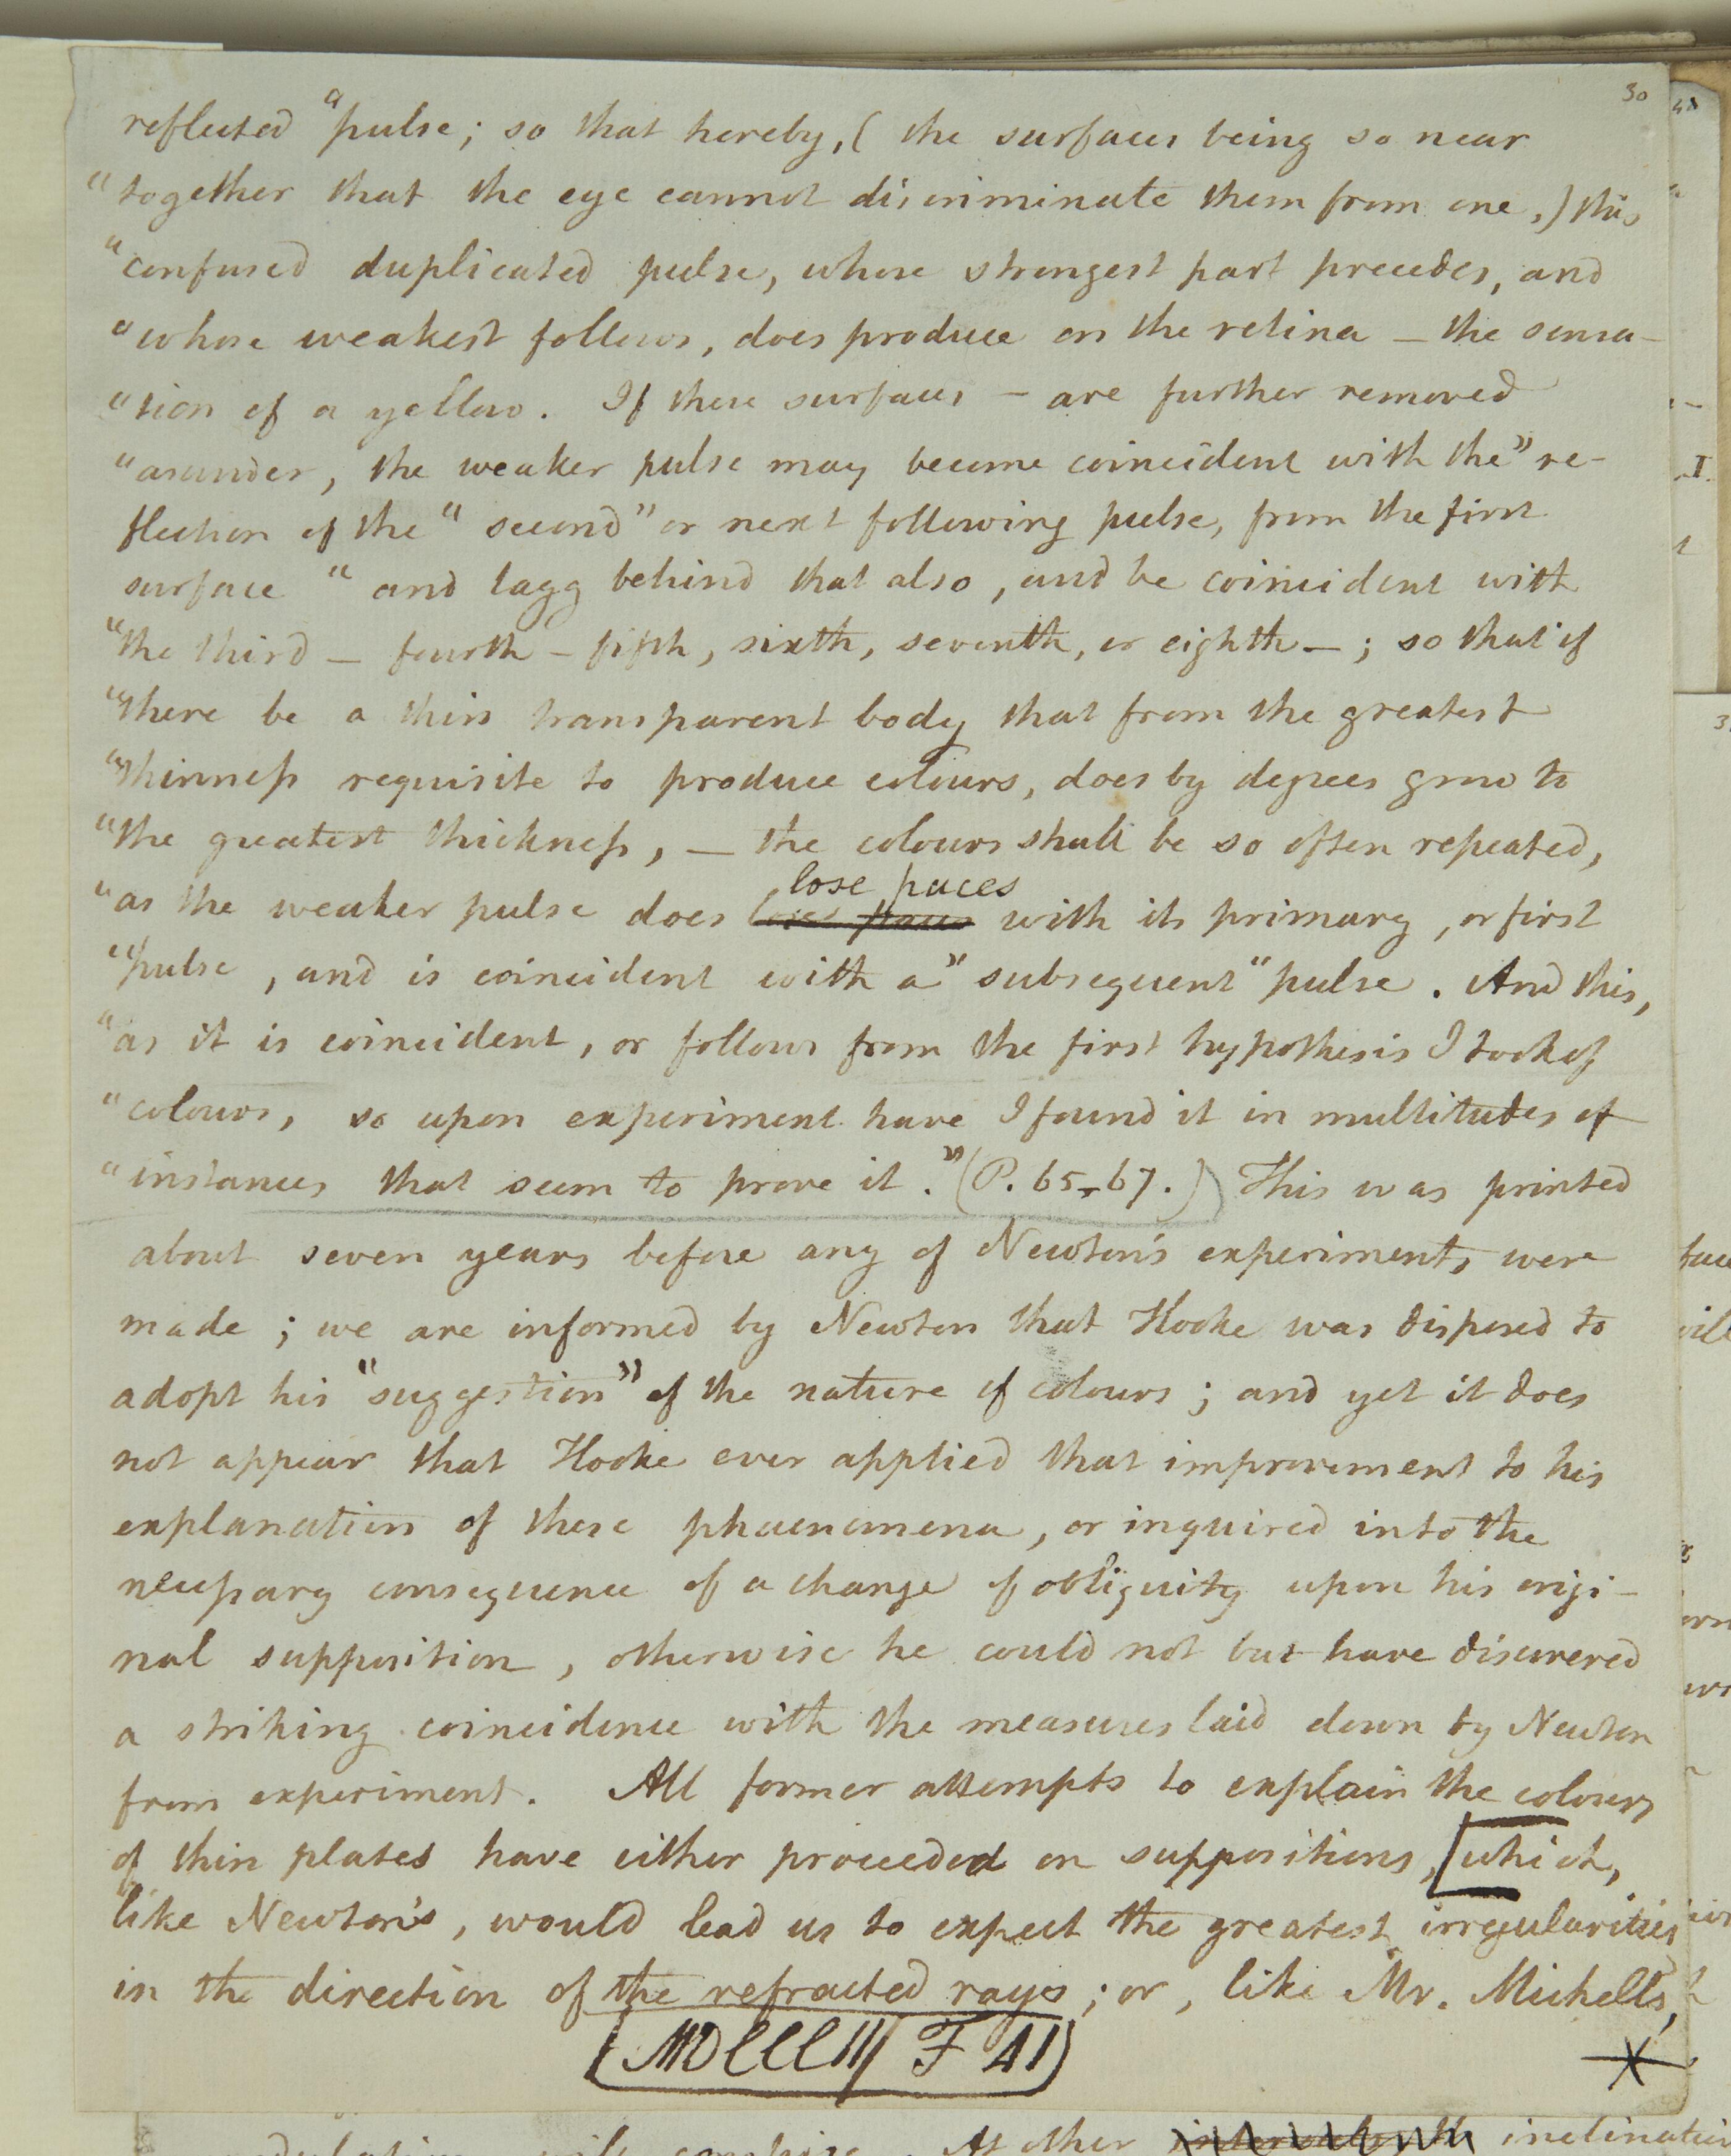 30
reflected "pulse; so that hereby, (the surfaces being so near
"together that the eye cannot discriminate them from one,) this
"confused duplicated pulse, whose strongest part precedes, and
"whose weakest follows, does produce on the retina — the sensa-
"tion of a yellow. If these surfaces — are further removed
"asunder, the weaker pulse may become coincident with the" re-
flection of the "second" or next following pulse, from the first
surface "and lagg behind that also, and be coincident with
"the third — fourth — fifth, sixth, seventh, or eighth —; so that if
"there be a thin transparent body that from the greatest
"thinness requisite to produce colours, does by degrees grow to
"the greatest thickness, — the colours shall be so often repeated,
lose paces
"as the weaker pulse does lose paces with its primary, or first
"pulse, and is coincident with a" subsequent "pulse. And this,
"as it is coincident, or follows from the first hypothesis I took of
"colours, so upon experiment have I found it in multitudes of
"instances that seem to prove it." (P. 65-67.) This was printed
about seven years before any of Newton's experiments were
made; we are informed by Newton that Hooke was disposed to
adopt his "suggestion" of the nature of colours; and yet it does
not appear that Hooke ever applied that improvement to his
explanation of these phaenomena, or inquired into the
necessary consequence of a change of obliquity upon his origi-
nal supposition, otherwise he could not but have discovered
a striking coincidence with the measures laid down by Newton
from experiment. All former attempts to explain the colours
of thin plates have either proceeded on suppositions, [which,
like Newton's, would lead us to expect the greatest irregularities
in the direction of the refracted rays; or, like Mr. Michell's,
(MDCCCII F 41)
At other inclination